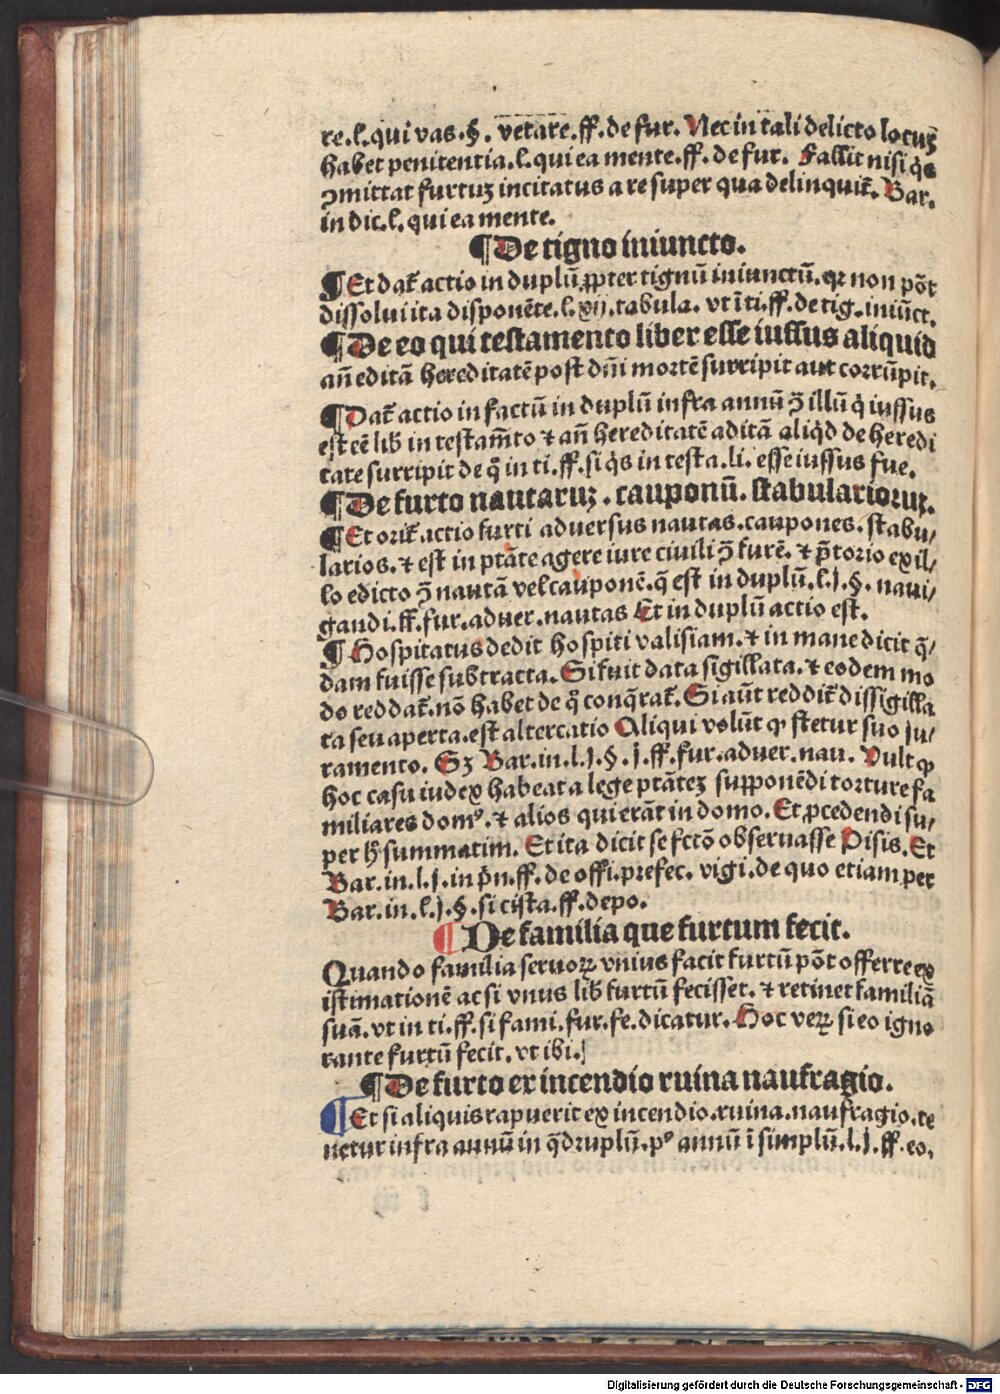 re.l.qui vas.§. vetare.ff.de fur. Nec in tali delicto locuꝫ
habet penitentia.l.qui ea mente.ff.de fur. Fallit nisi q̇s
ꝯmittat furtuꝫ incitatus a re super qua delinquit̃. Bar.
in dic.l.qui ea mente.
¶De tigno iniuncto.
¶Et dat̃ actio in duplũ ꝓpter tignũ iniunctũ.qꝛ non põt
dissolui ita disponẽte.l.xij.tabula. vt ĩ ti.ff.de tig.iniũct.
¶De eo qui testamento liber esse iussus aliquid
añ editã hereditatẽ post dñi mortẽ surripit aut corrũpit.
¶Dat̃ actio in factũ in duplũ infra annũ ↄ̃ illũ q̇ iussus
est eẽ lib̃ in testam̃to ⁊ añ hereditatẽ aditã aliq̇d de heredi
tate surripit de q̊ in ti.ff.si q̇s in testa.li.esse iussus fue.
¶De furto nautaruꝫ.cauponũ.stabularioruꝫ.
¶Et orit̃ actio furti aduersus nautas.caupones.stabu/
larios.⁊ est in ptãte agere iure ciuili ↄ̃ furẽ.⁊ p̃torio ex il/
lo edicto ↄ̃ nautã vel cauponẽ.q̃ est in duplũ.l.j.§.naui/
gandi.ff.fur.aduer.nautas Et in duplũ actio est.
¶Hospitatus dedit hospiti valisiam.⁊ in mane dicit q̃/
dam fuisse subtracta. Si fuit data sigillata.⁊ eodem mo
do reddat̃.nõ habet de q̊ conq̃rat̃. Si aũt reddit̃ dissigilla
ta seu aperta.est altercatio Aliqui volũt ꝙ stetur suo ju/
ramento. Sꝫ Bar.in.l.j.§.j.ff.fur.aduer.nau. Vult ꝙ
hoc casu iudex habeat a lege ptãteꝫ supponẽdi torture fa
miliares domꝰ.⁊ alios qui erãt in domo. Et ꝓcedendi su/
per h̊ summatim. Et ita dicit se fctõ obseruasse Pisis. Et
Bar.in.l.j.in p̃n.ff.de offi.prefec.vigi.de quo etiam per
Bar.in.l.j.§.si cista.ff.depo.
¶De familia que furtum fecit.
Quando familia seruoꝝ vnius facit furtũ põt offerre ex
istimationẽ ac si vnus lib̃ furtũ fecisset.⁊ retinet familiã
suã.vt in ti.ff.si fami.fur.fe.dicatur. Hoc veꝝ si eo igno
rante furtũ fecit.vt ibi.
¶De furto ex incendio ruina naufragio.
¶Et si aliquis rapuerit ex incendio.ruina.naufragio.te
netur infra annũ in q̃druplũ.pꝰ annũ ĩ simplũ.l.j.ff.eo.
Digitalisierung gefördert durch die Deutsche Forschungsgemeinschaft - DFG